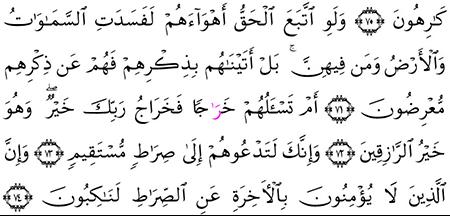 كَٰرِهُونَ ﴿٧٠﴾ وَلَوِ ٱتَّبَعَ ٱلْحَقُّ أَهْوَآءَهُمْ لَفَسَدَتِ ٱلسَّمَٰوَٰتُ
وَٱلْأَرْضُ وَمَن فِيهِنَّ ۚ بَلْ أَتَيْنَٰهُم بِذِكْرِهِمْ فَهُمْ عَن ذِكْرِهِم
مُّعْرِضُونَ ﴿٧١﴾ أَمْ تَسْـَٔلُهُمْ خَرَٰجًا فَخَرَاجُ رَبِّكَ خَيْرٌ ۖ وَهُوَ
خَيْرُ ٱلرَّٰزِقِينَ ﴿٧٢﴾ وَإِنَّكَ لَتَدْعُوهُمْ إِلَىٰ صِرَٰطٍ مُّسْتَقِيمٍ ﴿٧٣﴾ وَإِنَّ
ٱلَّذِينَ لَا يُؤْمِنُونَ بِٱلْأٓخِرَةِ عَنِ ٱلصِّرَٰطِ لَنَٰكِبُونَ ﴿٧٤﴾